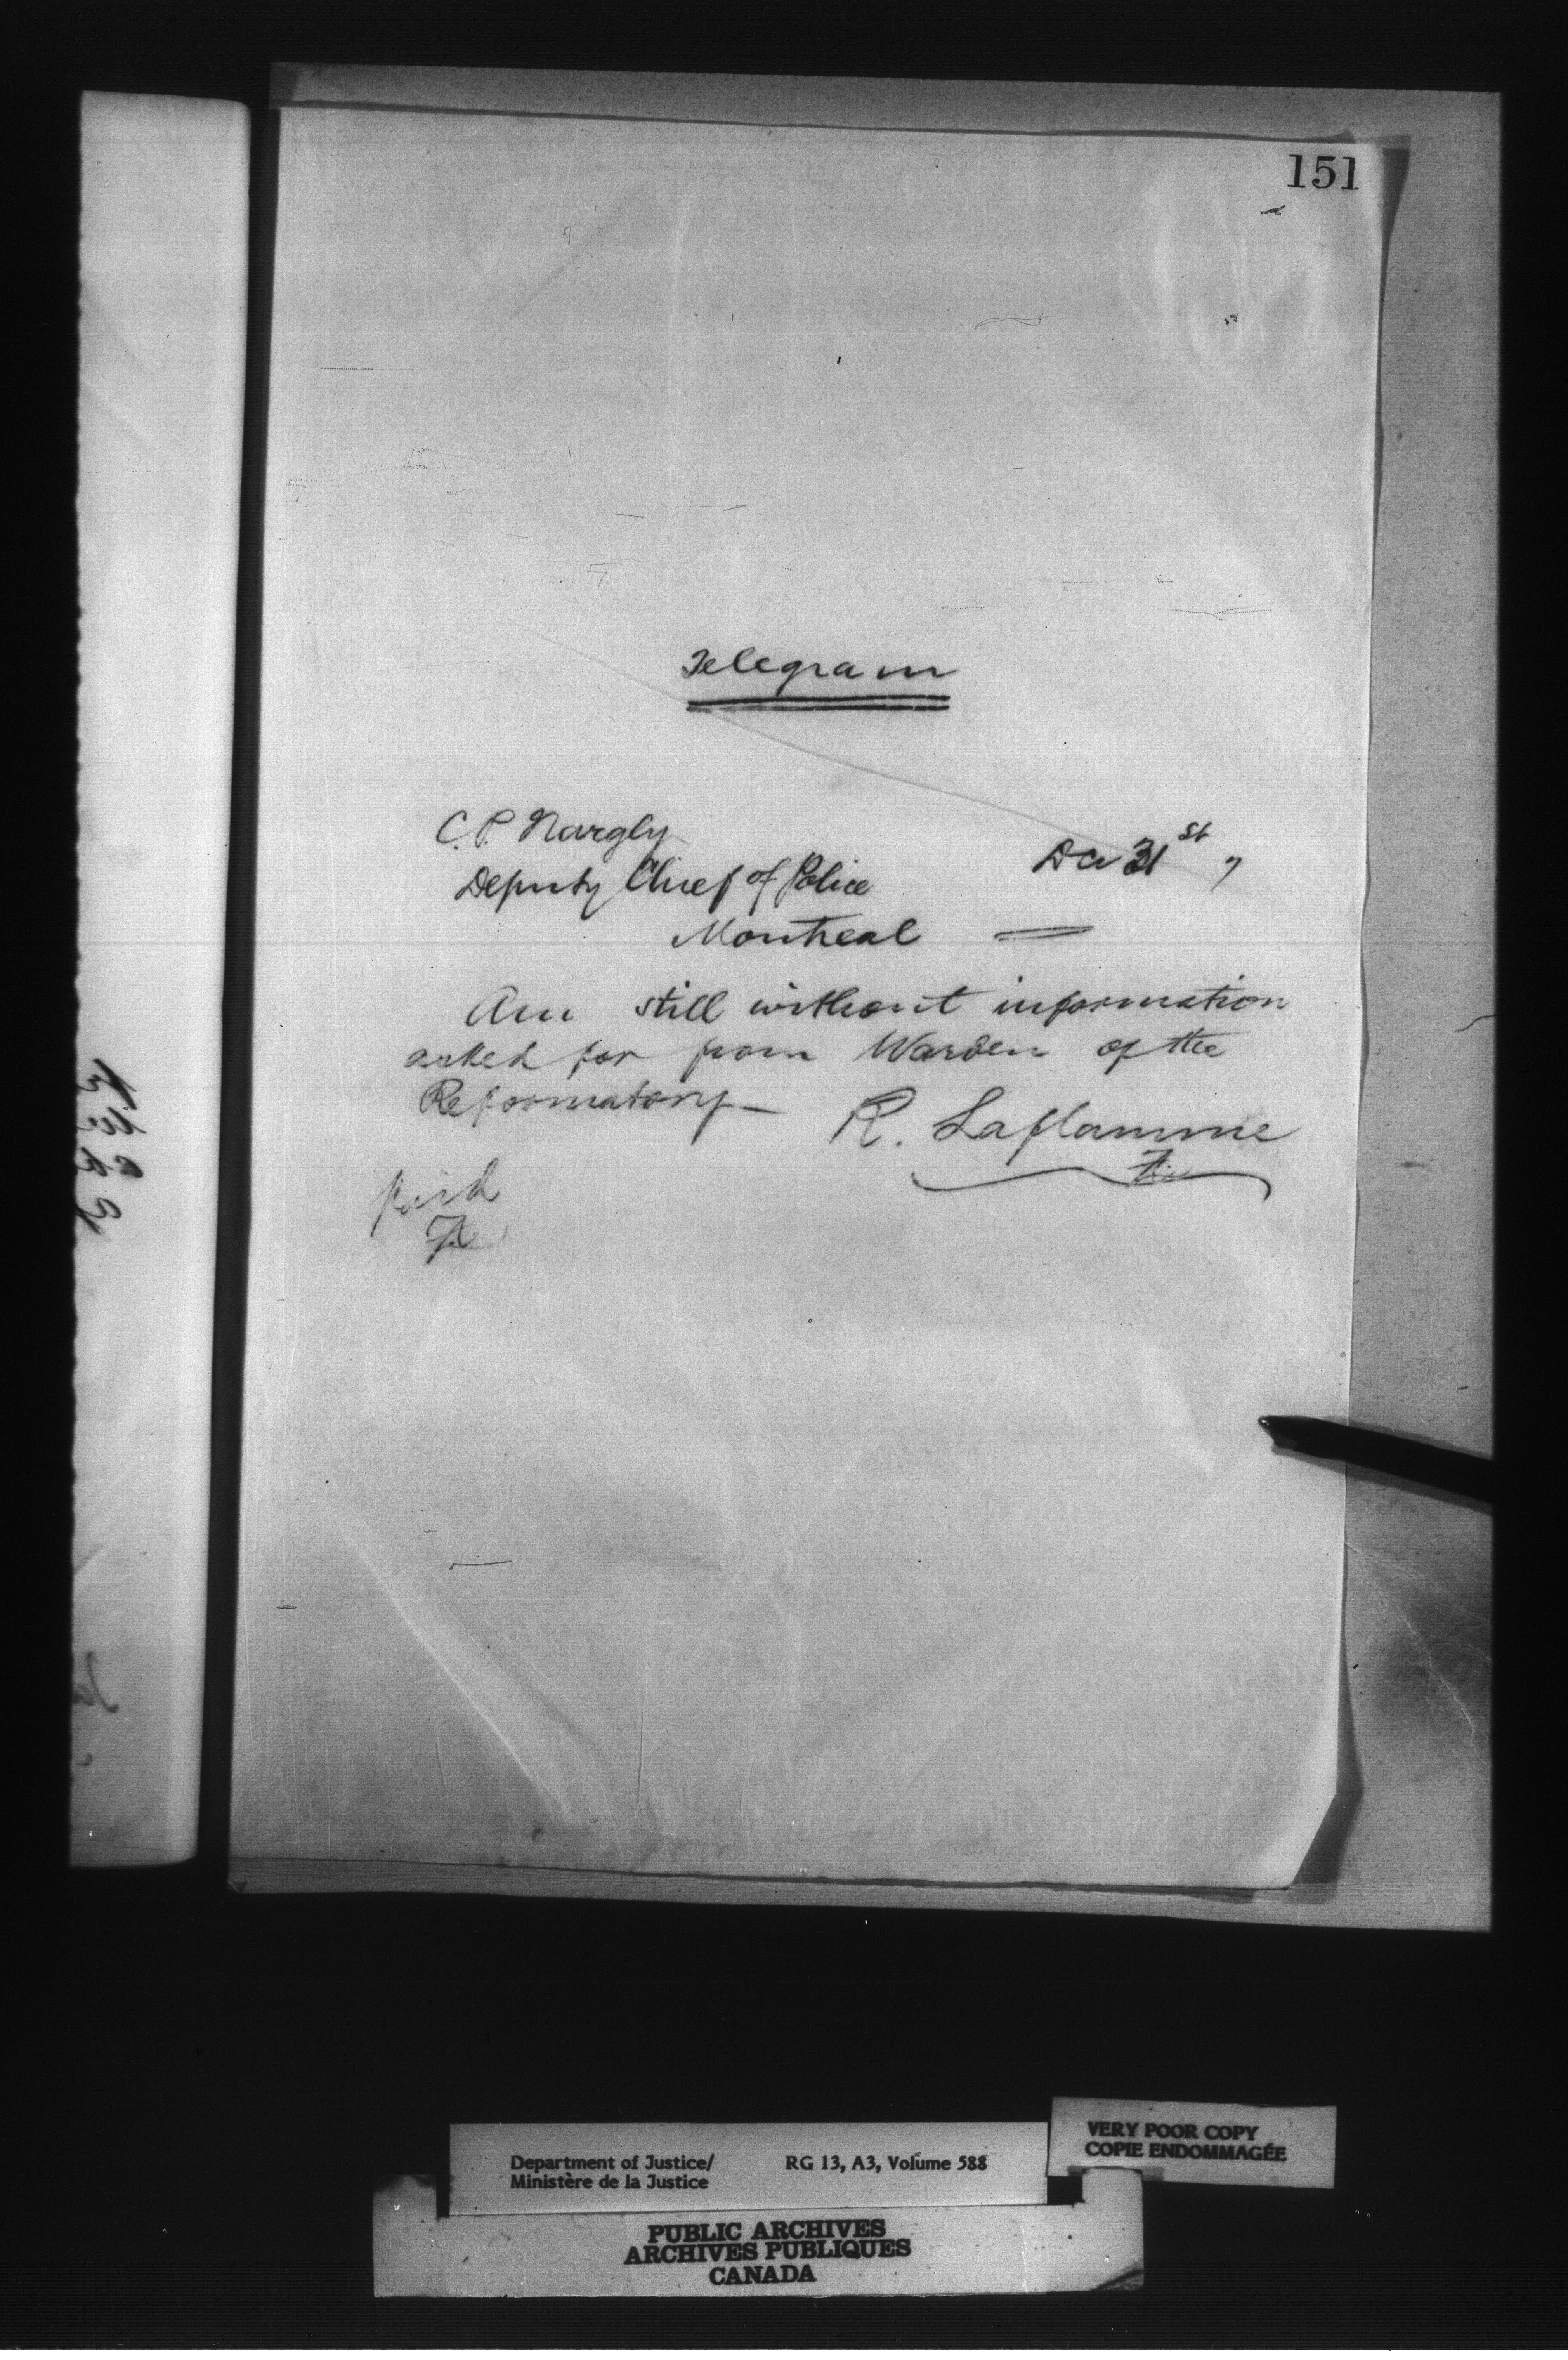 151
Telegram
C. P. Nargly
Deputy Chief of Police
Dec 31st 7
Montreal
Am still without information
asked for from Warden of the
Reformatory—
R. Laflamme
paid
Department of Justice/
Ministère de la Justice
RG 13, A3, Volume 588
VERY POOR COPY
COPIE ENDOMMAGÉE
PUBLIC ARCHIVES
ARCHIVES PUBLIQUES
CANADA